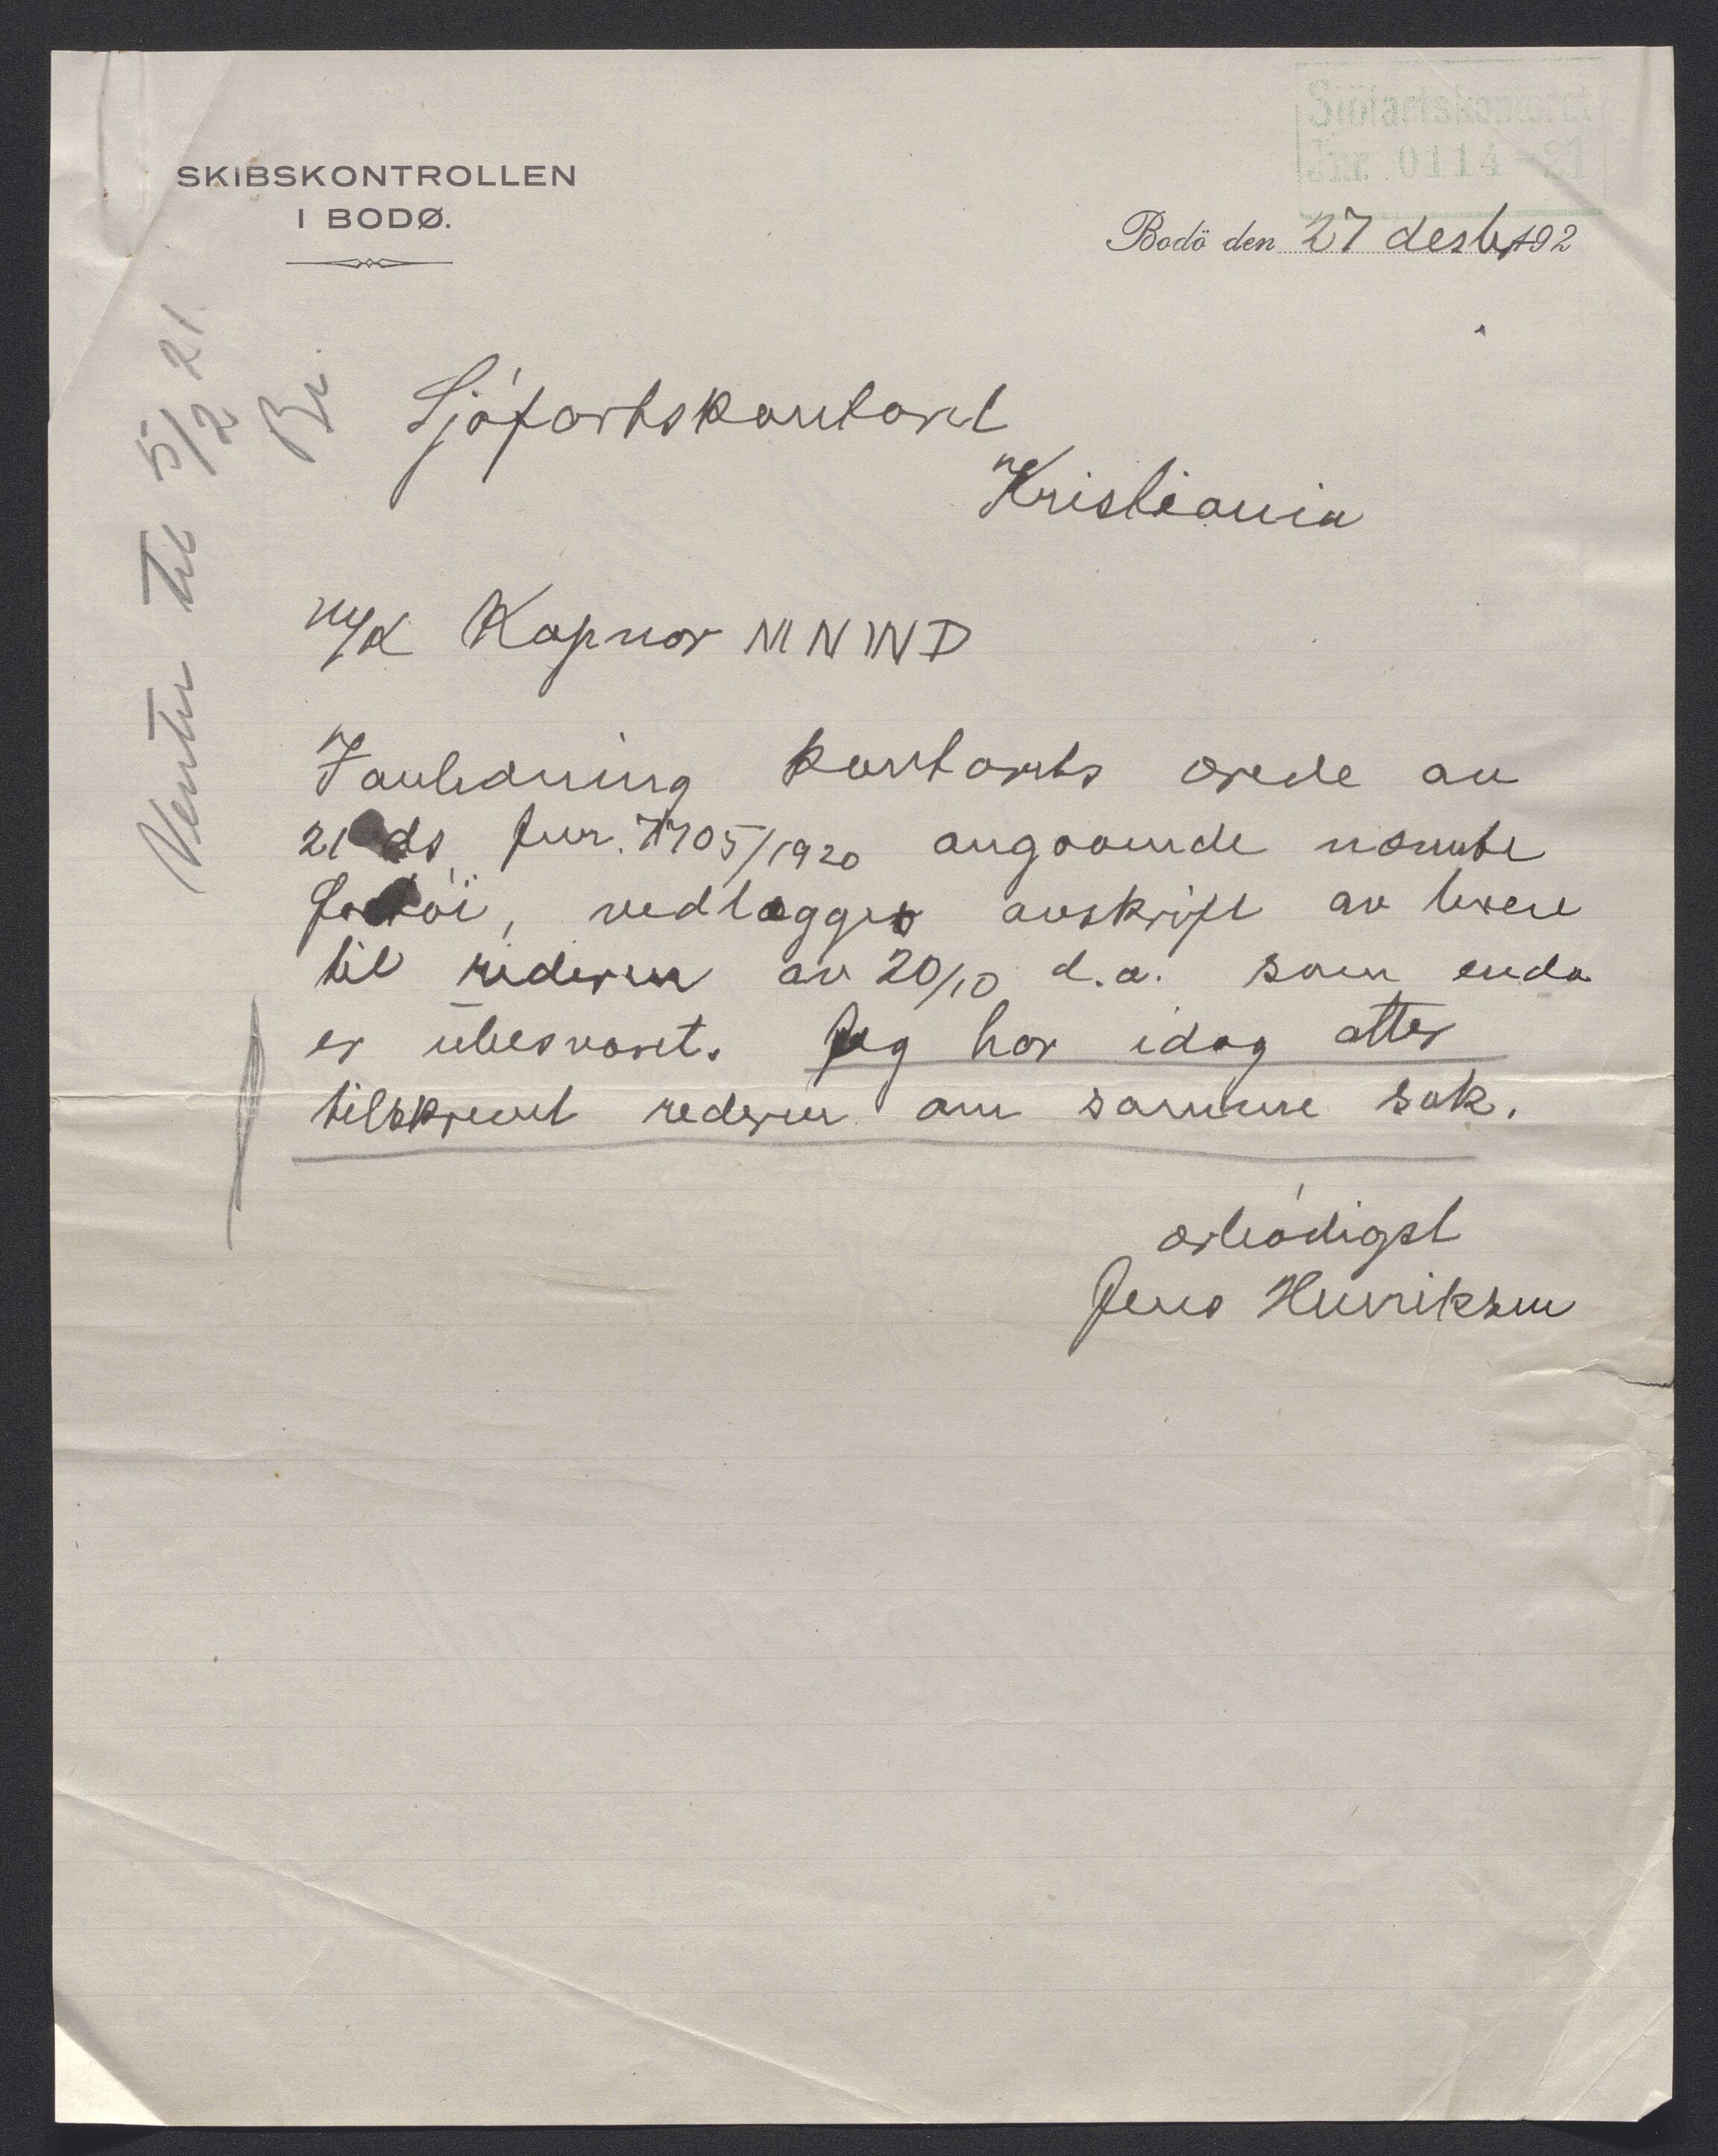 Sjöfartskontoret
Jnr. 0114-21
SKIBSKONTROLLEN
I BODØ.
Bodö den 27 desbr 192
Venter til 5/2 21.
Br.
Sjøfartskontoret
Kristiania
m/k Kapnor MNWD
I anledning kontorets ærede av
21 ds Jnr. 7705/1920 angaaende nævnte
farkøi, vedlægges avskrift av brev
til rederen av 20/10 d.a. som enda
er ubesvaret. Jeg har idag atter
tilskrevet rederen om samme sak.
ærbødigst
Jens Henriksen